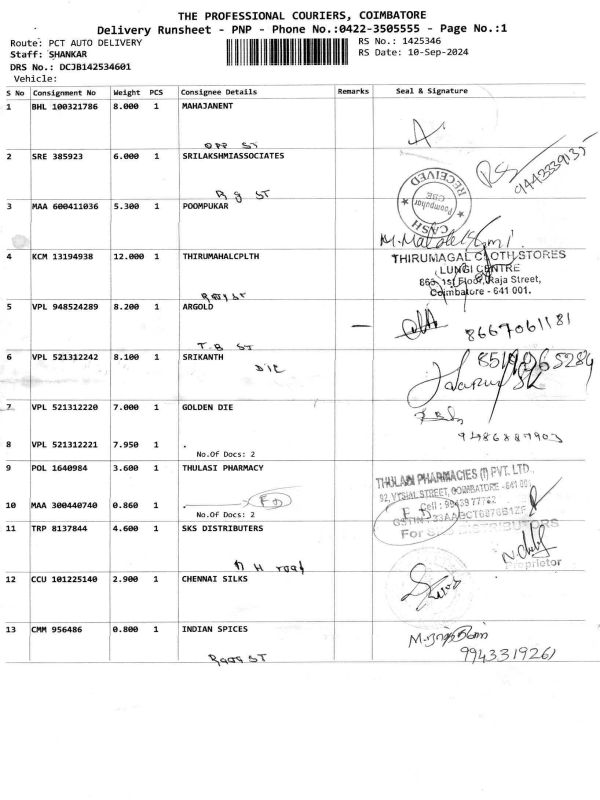 THE PROFESSIONAL COURIERS, COIMBATORE
Delivery Runsheet - PNP - Phone No.:0422-3505555 - Page No.:1
Route: PCT AUTO DELIVERY RS No.: 1425346
Staff: SHANKAR RS Date: 10-Sep-2024
DRS No.: DCJB142534601
Vehicle:
S No Consignment No Weight PCS Consignee Details Remarks Seal & Signature
1 BHL 100321786 8.000 1 MAHAJANENT
OPP ST
2 SRE 385923 6.000 1 SRILAKSHMIASSOCIATES
9442339135
RECEIVED
R g ST
3 MAA 600411036 5.300 1 POOMPUKAR
Poompuhar
CBE
CASH
4 KCM 13194938 12.000 1 THIRUMAHALCPLTH
THIRUMAGAL CLOTH STORES
LUNGI CENTRE
863, 1st Floor, Raja Street,
Coimbatore - 641 001.
5 VPL 948524289 8.200 1 ARGOLD
8667061181
T.B ST
6 VPL 521312242 8.100 1 SRIKANTH
7 VPL 521312220 7.000 1 GOLDEN DIE
8 VPL 521312221 7.950 1 .
No.Of Docs: 2
9 POL 1640984 3.600 1 THULASI PHARMACY
THULASI PHARMACIES (I) PVT. LTD.
92, VYSIAL STREET, COIMBATORE - 641 001
10 MAA 300440740 0.860 1 .
No.Of Docs: 2
11 TRP 8137844 4.600 1 SKS DISTRIBUTERS
For DISTRIBUTORS
Proprietor
N H road
12 CCU 101225140 2.900 1 CHENNAI SILKS
13 CMM 956486 0.800 1 INDIAN SPICES
9943319261